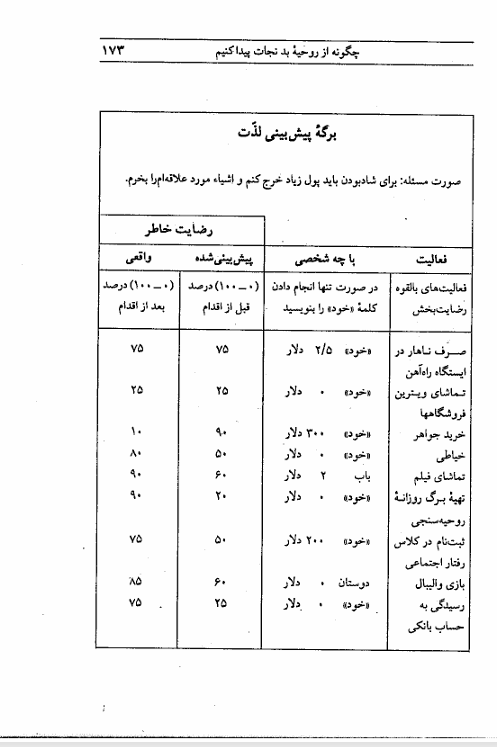 چگونه از روحیهٔ بد نجات پیدا کنیم ۱۷۳
برگهٔ پیش‌بینی لذّت
صورت مسئله: برای شادبودن باید پول زیاد خرج کنم و اشیاء مورد علاقه‌ام را بخرم.
رضایت خاطر
فعالیت با چه شخصی پیش‌بینی‌شده واقعی
فعالیت‌های بالقوه در صورت تنها انجام دادن (۰–۱۰۰) درصد (۰–۱۰۰) درصد
رضایت‌بخش کلمهٔ «خود» را بنویسید قبل از اقدام بعد از اقدام
صرف ناهار در «خود» ۲/۵ دلار ۷۵ ۷۵
ایستگاه راه‌آهن
تماشای ویترین «خود» ۰ دلار ۲۵ ۲۵
فروشگاهها
خرید جواهر «خود» ۳۰۰ دلار ۹۰ ۱۰
خیاطی «خود» ۰ دلار ۵۰ ۸۰
تماشای فیلم باب ۲ دلار ۶۰ ۹۰
تهیهٔ برگ روزانهٔ «خود» ۰ دلار ۲۰ ۹۰
روحیه‌سنجی
ثبت‌نام در کلاس «خود» ۲۰۰ دلار ۵۰ ۷۵
رفتار اجتماعی
بازی والیبال دوستان ۰ دلار ۶۰ ۸۵
رسیدگی به «خود» ۰ دلار ۲۵ ۷۵
حساب بانکی